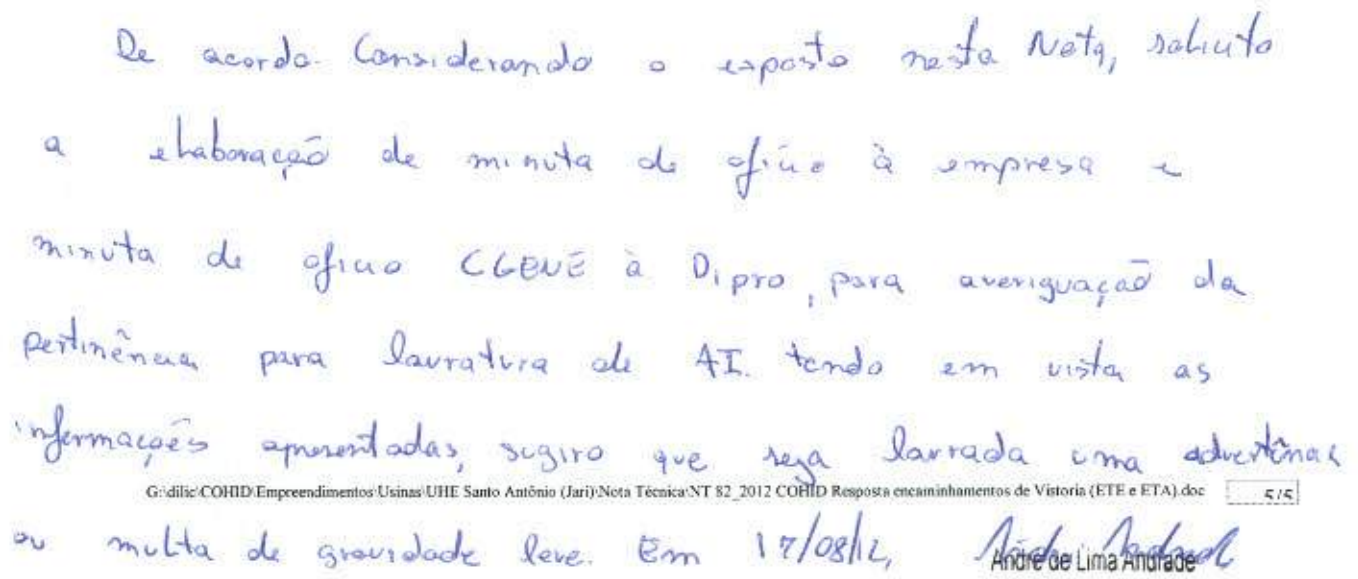 De acordo. Considerando o exposto nesta Nota, solicito
a elaboração de minuta de ofício à empresa e
minuta de ofício CGENE à Dipro, para averiguação da
pertinência para lavratura de AI. tendo em vista as
informações apresentadas, sugiro que seja lavrada uma advertência
G:\dilic\COHID\Empreendimentos\Usinas\UHE Santo Antônio (Jari)\Nota Técnica\NT 82_2012 COHID Resposta encaminhamentos de Vistoria (ETE e ETA).doc 5/5
ou multa de gravidade leve. Em 17/08/12,
André de Lima Andrade